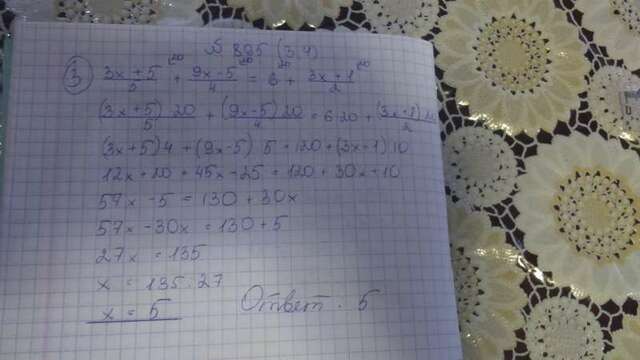 № 895 (3,4)
③ (3x+5)/5 + (9x-5)/4 = 6 + (3x+1)/2
(3x+5)20/5 + (9x-5)20/4 = 6·20 + (3x+1)20/2
(3x+5)4 + (9x-5)5 = 120 + (3x+1)10
12x + 20 + 45x - 25 = 120 + 30x + 10
57x - 5 = 130 + 30x
57x - 30x = 130 + 5
27x = 135
x = 135:27
x = 5
Ответ. 5